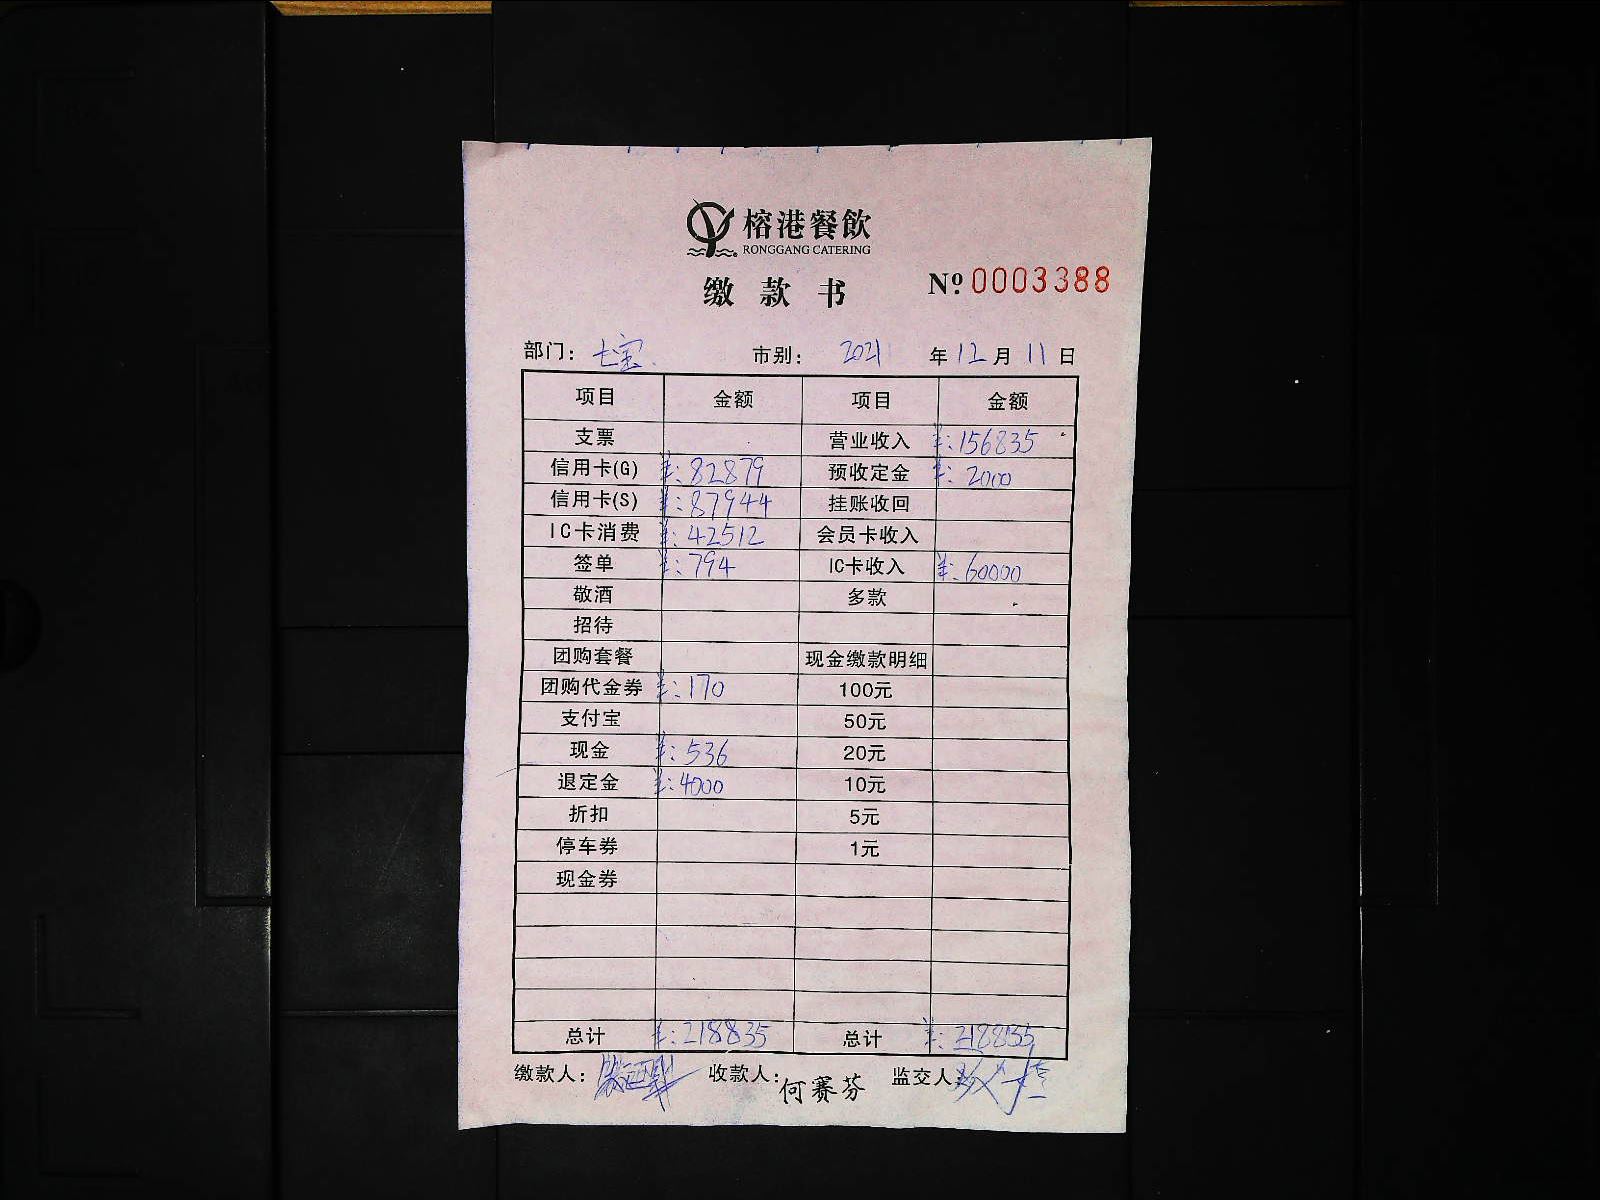 榕港餐飲
RONGGANG CATERING
缴款书 Nº 0003388
部门: 七宝 市别: 2021 年 12 月 11 日
项目 金额 项目 金额
支票 营业收入 ¥:156835
信用卡(G) ¥:82879 预收定金 ¥:2000
信用卡(S) ¥:87944 挂账收回
IC卡消费 ¥:42512 会员卡收入
签单 ¥:794 IC卡收入 ¥:60000
敬酒 多款
招待
团购套餐 现金缴款明细
团购代金券 ¥:170 100元
支付宝 50元
现金 ¥:536 20元
退定金 ¥:4000 10元
折扣 5元
停车券 1元
现金券
总计 ¥:218835 总计 ¥:218835
缴款人: 收款人: 何赛芬 监交人: